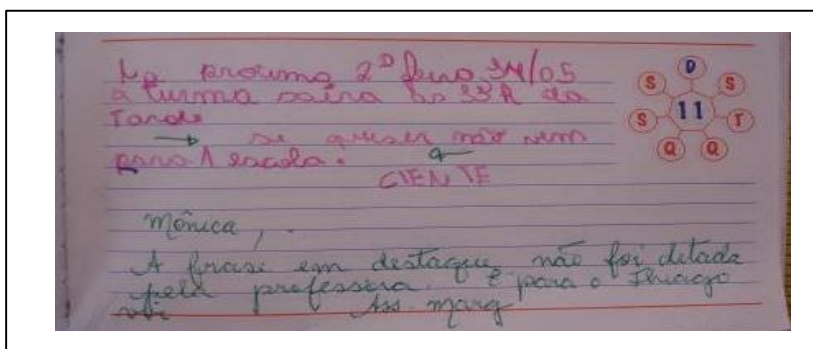 próxima 2ª feira /05
a turma saíra às da
Tarde
se quiser não vem
para A escola.
CIENTE
D
S S
11
S T
Q Q
Mônica,
A frase em destaque não foi ditada
pela professora. É para o Thiago
vir Ass. marg